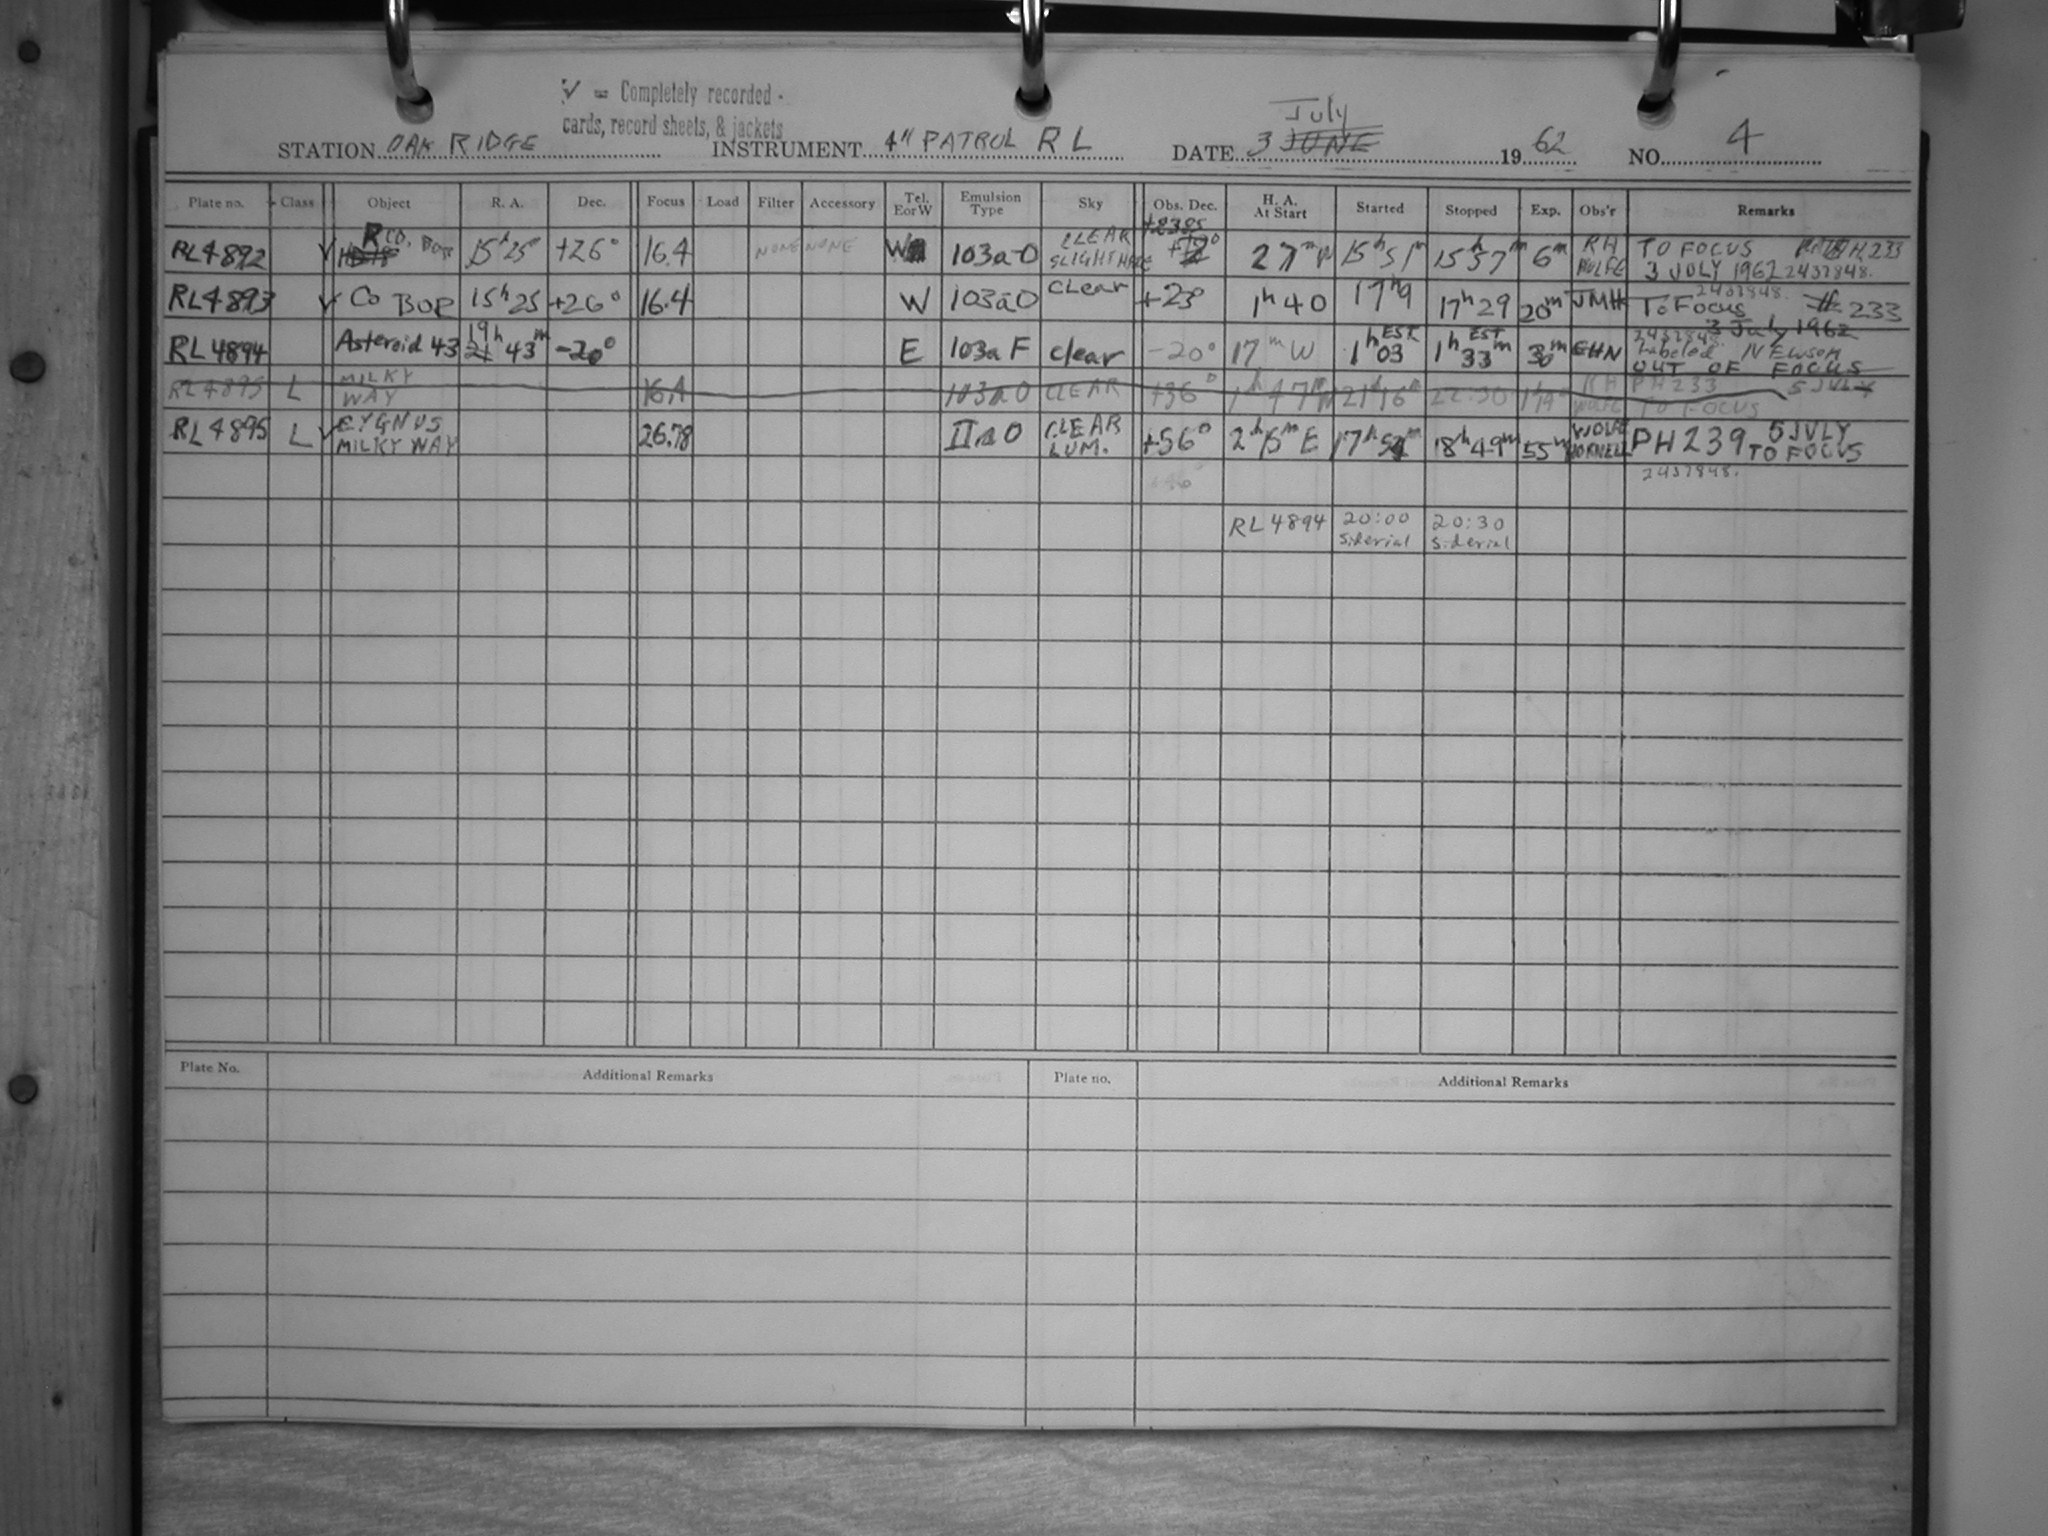 √ = Completely recorded -
cards, record sheets, & jackets
July
STATION OAK RIDGE INSTRUMENT 4" PATROL RL DATE 3 JUNE 1962 NO. 4
Plate no. Class Object R. A. Dec. Focus Load Filter Accessory Tel. E or W Emulsion Type Sky Obs. Dec. H. A. At Start Started Stopped Exp. Obs'r Remarks
RL4892 √ R CO. BOR 15h25m +26° 16.4 NONE NONE W 103a-O CLEAR SLIGHT HAZE 27m W 15h51m 15h57m 6m RH WOLFE TO FOCUS PH 233
3 JULY 1962 2437848.
RL4893 √ Co BOR 15h25 +26° 16.4 W 103aO clear +23° 1h40 17h9 17h29 20m JMH To Focus 2437848. # 233
3 July 1962
RL4894 Asteroid 43 19h 21 43m -20° E 103a F clear -20° 17m W 1h03 EST 1h33m EST 30m EHN 2437848. Labeled NEWSOM
OUT OF FOCUS
RL4895 L MILKY WAY 16.4 103aO CLEAR +36° 1h47m 21h16m 22:30 RH WOLFE PH233 5 JULY
TO FOCUS
RL4895 L √ CYGNUS MILKY WAY 26.78 IIaO CLEAR LUM. +56° 2h 15m E 17h54m 18h49m 55m WOLFE PH239 5 JULY
TO FOCUS
2437848.
RL4894 20:00 siderial 20:30 siderial
Plate No. Additional Remarks Plate no. Additional Remarks